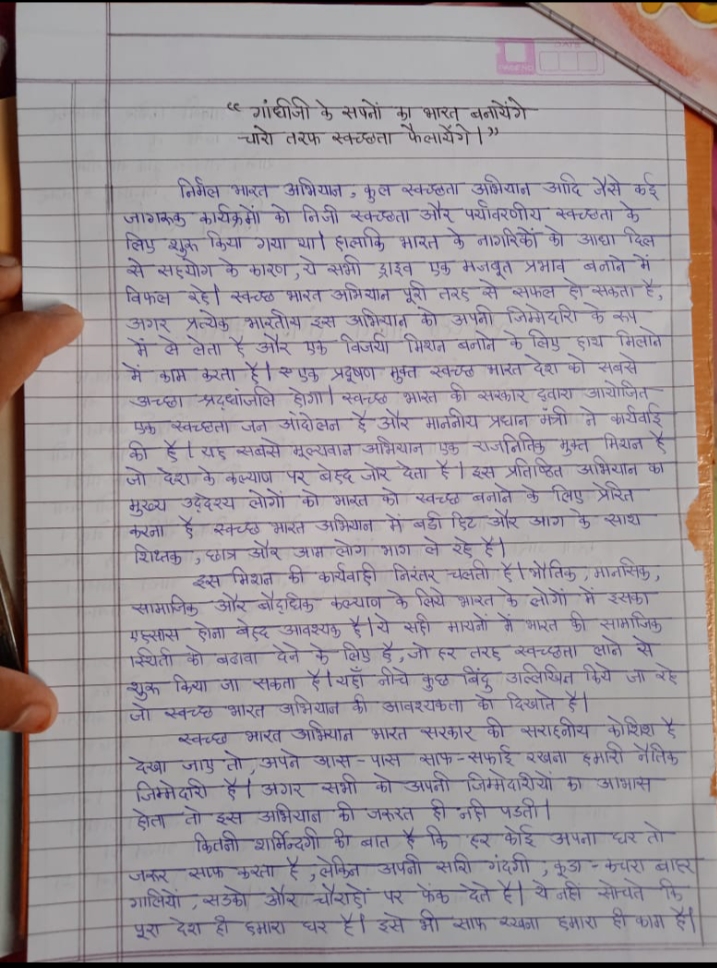 “ गांधीजी के सपनों का भारत बनायेंगे
चारो तरफ स्वच्छता फैलायेंगे।”
निर्मल भारत अभियान, कुल स्वच्छता अभियान आदि जैसे कई
जागरुक कार्यक्रमों को निजी स्वच्छता और पर्यावरणीय स्वच्छता के
लिए शुरु किया गया था। हालांकि भारत के नागरिकों को आधा दिल
से सहयोग के कारण, ये सभी ड्राइव एक मजबूत प्रभाव बनाने में
विफल रहे। स्वच्छ भारत अभियान पूरी तरह से सफल हो सकता है,
अगर प्रत्येक भारतीय इस अभियान को अपनी जिम्मेदारी के रूप
में ले लेता है और एक विजयी मिशन बनाने के लिए हाथ मिलाने
में काम करता है। एक प्रदूषण मुक्त स्वच्छ भारत देश को सबसे
अच्छा श्रद्धांजलि होगा। स्वच्छ भारत की सरकार द्वारा आयोजित
एक स्वच्छता जन आंदोलन है और माननीय प्रधान मंत्री ने कार्यवाई
की है। यह सबसे मूल्यवान अभियान एक राजनितिक मुक्त मिशन है
जो देश के कल्याण पर बेहद जोर देता है। इस प्रतिष्ठित अभियान का
मुख्य उद्देश्य लोगों को भारत को स्वच्छ बनाने के लिए प्रेरित
करना है स्वच्छ भारत अभियान में बडी हिट और आग के साथ
शिक्षक, छात्र और आम लोग भाग ले रहे है।
इस मिशन की कार्यवाही निरंतर चलती है। भौतिक, मानसिक,
सामाजिक और बौद्धिक कल्याण के लिये भारत के लोगों में इसका
एहसास होना बेहद आवश्यक है। ये सही मायनों में भारत की सामाजिक
स्थिती को बढावा देने के लिए है, जो हर तरह स्वच्छता लाने से
शुरू किया जा सकता है। यहाँ नीचे कुछ बिंदु उल्लिखित किये जा रहे
जो स्वच्छ भारत अभियान की आवश्यकता को दिखाते है।
स्वच्छ भारत अभियान भारत सरकार की सराहनीय कोशिश है
देखा जाए तो, अपने आस-पास साफ-सफाई रखना हमारी नैतिक
जिम्मेदारी है। अगर सभी को अपनी जिम्मेदारियों का आभास
होता तो इस अभियान की जरूरत ही नही पडती।
कितनी शर्मिन्दगी की बात है कि हर कोई अपना घर तो
जरूर साफ करता है, लेकिन अपनी सारी गंदगी, कूडा-कचरा बाहर
गालियों, सडको और चौराहों पर फेंक देते है। ये नहीं सोचते कि
पूरा देश ही हमारा घर है। इसे भी साफ रखना हमारा ही काम है।